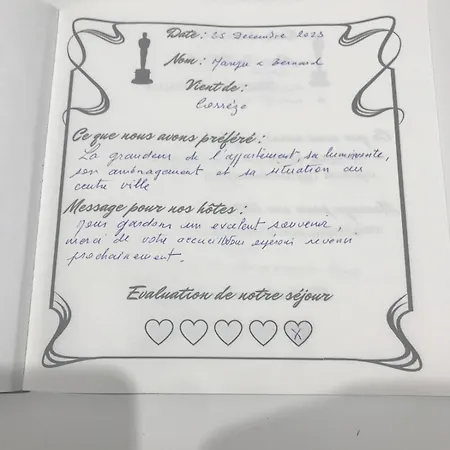 Date : 25 Decembre 2023
Nom : & Bernard
Vient de :
Corrèze
Ce que nous avons préféré :
La grandeur de l'appartement, sa luminosité,
son aménagement et sa situation au
centre ville
Message pour nos hôtes :
Nous gardons un excellent souvenir,
merci de votre accueil. Nous espérons revenir
prochainement.
Evaluation de notre séjour
X